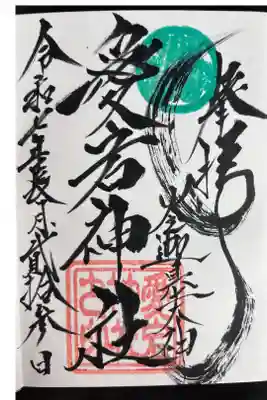 奉拝
大神
愛宕神社
令和七年長月貳拾参日